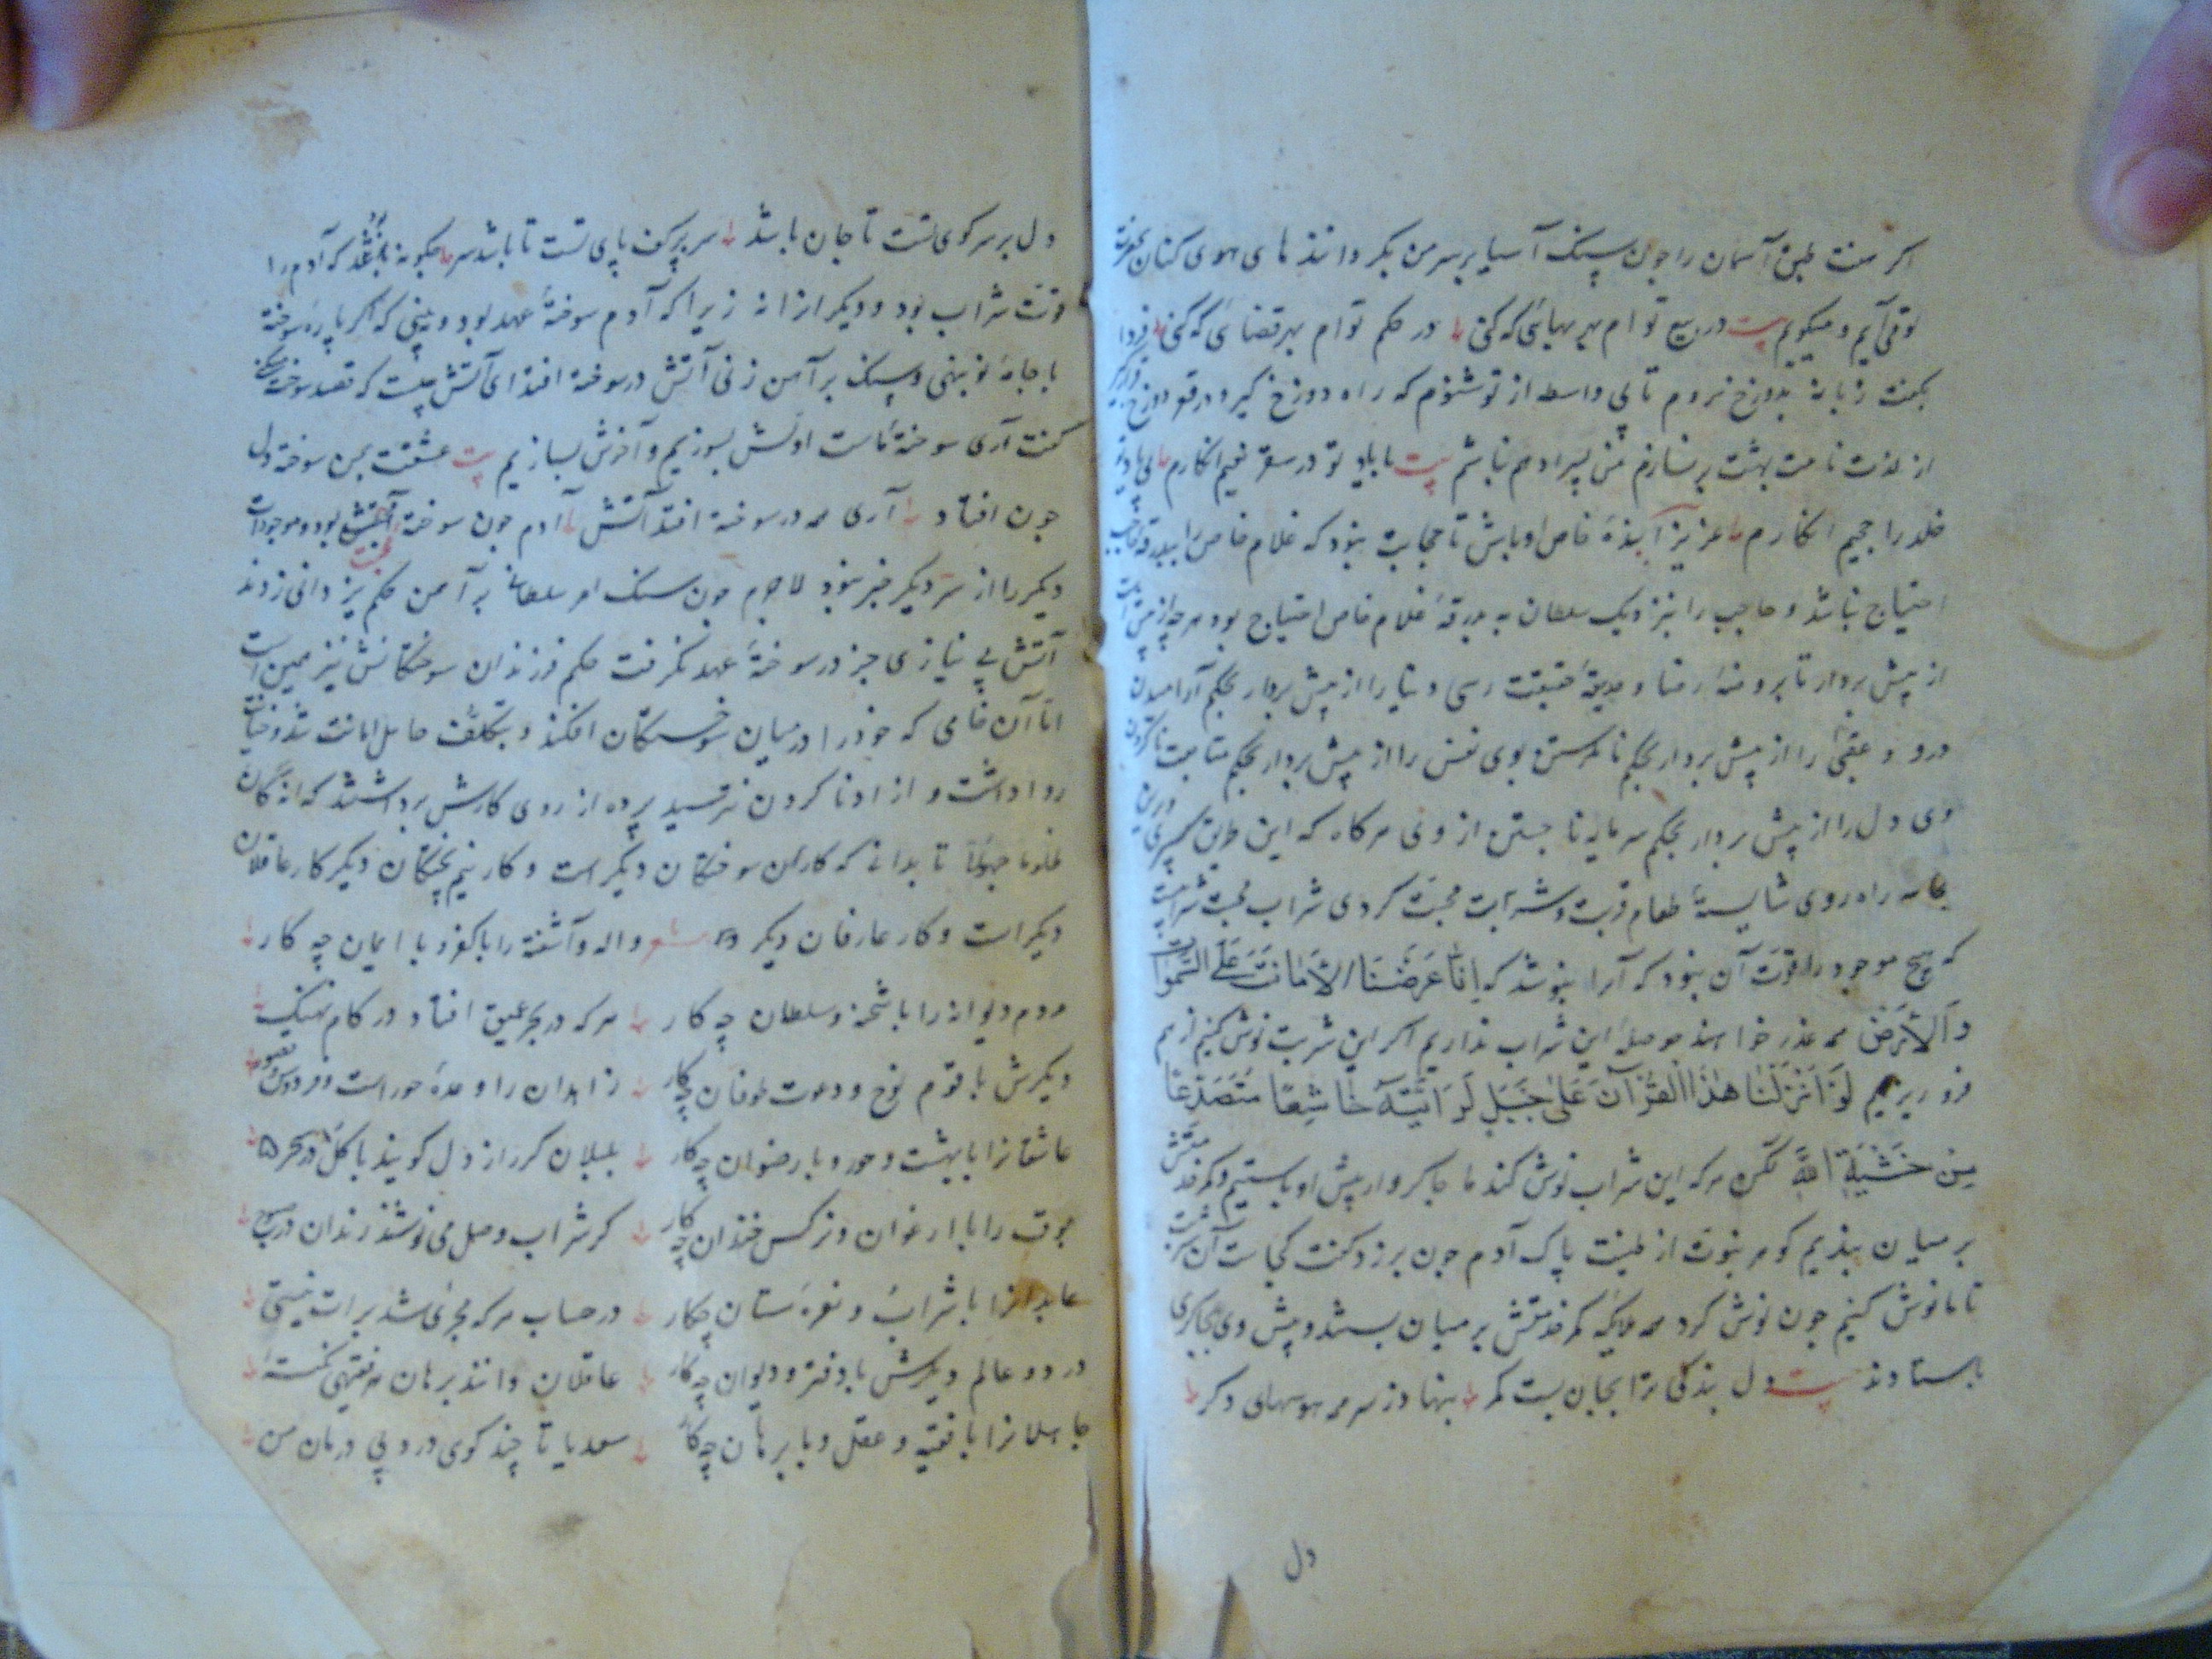 اکر هفت طبق آسمان را جون سنک آسیا بر سر من بکردانند های هوی کنان بحضرت
توقی آیم و میکویم بیت در بیع توام بهر بهائی که کنی در حکم توام بهر قضائی که کنی فردا
بکفت زبانه بدوزخ نروم تا بی واسطه از تو نشنوم که راه دوزخ کیر و در قعر دوزخ
از لذت نامت بهشت بر نسازم من پسر آدم نباشم بیت با یاد تو در سقر نعیم انکارم بی یاد تو
خلد را جحیم انکارم عزیز آ بندهٔ خاص او باش تا حجابت نبود که غلام خاص را ببدرقه حاجب
احتیاج نباشد و حاجب را بنزدیک سلطان به بدرقهٔ غلام خاص احتیاج بود هرچه
از پیش بردار تا بروضهٔ رضا و حدیقهٔ حقیقت رسی دنیا را از پیش بردار بحکم نا آرامیدن
درو و عقبی را از پیش بردار بحکم نانکرستن بوی نفس را از پیش بردار بحکم متابعت ناکردن
وی دل را از پیش بردار بحکم سرمایه نا جستن از وی هرکاه که این طریق سپری
راه روی شایستهٔ طعام قربت و شربت محبت کردی شراب محبت شرابیست
که هیچ موجود را قوت آن نبود که آنرا بنوشد که اِنّا عَرَضْنَا الْاَمانَتَ عَلَی السَّمٰواتِ
وَالْاَرْضِ همه عذر خواستند حوصلهٔ این شراب نداریم اکر این شربت نوش کنیم از هم
فرو ریزیم لَوْ اَنْزَلْنٰا هٰذَا الْقُرْآنَ عَلٰی جَبَلٍ لَرَاَیْتَهُ خٰاشِعًا مُتَصَدِّعًا
مِنْ خَشْیَةِ اللّٰهِ لکن هرکه این شراب نوش کند ما چاکروار پیش او بایستیم و کمر خدمتش
بر میان بندیم کوهر نبوت از طینت پاک آدم جون برزد و کفت کجاست آن شربت
تا ما نوش کنیم جون نوش کرد همه ملایکه کمر خدمتش بر میان بستند و پیش وی بچاکری
بایستادند بیت دل بندکی ترا بجان بست کمر بنهاد ز سر همه هوسهای دکر
دل
دل بر سر کوی تست تا جان باشد سر بر کف پای تست تا باشد سر چکونه باشد که آدم را
قوت شراب بود و دیکرانرا نه زیرا که آدم سوختهٔ عهد بود و نه بینی که اکر پارهٔ سوخته
با جامهٔ نو بنهی و سنک بر آهن زنی آتش در سوخته افتد ای آتش چیست که قصد سوخته میکنی
کفت آری سوختهٔ ماست اولش بسوزیم و آخرش بسازیم بیت عشقت بمن سوخته دل
جون افتاد آری همه در سوخته افتد آتش آدم جون سوختهٔ آتش محبت بود و موجودات
دیکر را از سر دیکر خبر نبود لاجرم جون سنک امر سلطانی بر آهن حکم یزدانی زدند
آتش بی نیازی جز در سوختهٔ عهد نکرفت حکم فرزندان سوختکانش نیز همین است
اما آن خامی که خود را در میان سوختکان افکند و بتکلف حامل امانت شد و خیانت
روا داشت و از ادنا کردن نترسید پرده از روی کارش برداشتند که انه کان
ظلوما جهولا تا بدانی که کار سوختکان دیکر است و کار نیم پختکان دیکر کار عاقلان
دیکر است و کار عارفان دیکر شعر واله و آشفته را با کفر و با ایمان چه کار
مردم دیوانه را با شحنه و سلطان چه کار هرکه در بحر عمیق افتاد در کام نهنک
دیکرش با قوم نوح و دعوت طوفان چه کار زاهدان را وعدهٔ حور است و فردوس و قصور
عاشقانرا با بهشت و حور و با رضوان چه کار بلبلان کر راز دل کویند با کل در سحر
بوف را با ارغوان و نرکس خندان چه کار کر شراب وصل می نوشند رندان در صبوح
عابدانرا با شراب و نعرهٔ مستان چکار در حساب هرکه مجری شد برات نیستی
در دو عالم دیکرش با دفتر و دیوان چه کار عاقلان دانند برهان هر فقیهی نکتهٔ
جاهلانرا با فقیه و عقل و با برهان چه کار سعدیا تا چند کوی درد بی درمان من